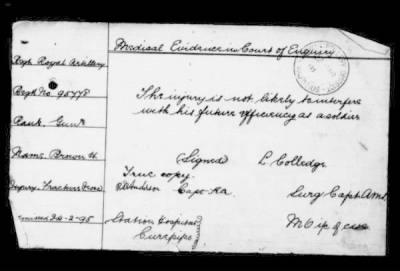 Medical Evidence in Court of Enquiry
Regt. Royal Artillery
Regtl No. 95778
Rank. Gunr
Name. Brown H.
Injury. Fracture Nose
24-2-95
The injury is not likely to interfere
with his future efficiency as a soldier
Signed L Colledge
True copy.
Capt. RA. Surg Capt. Ams.
Station Hospital
Curepipe
M O i/c of case